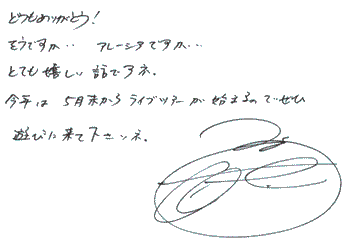 どうもありがとう!
そうですか‥ アレーシアですか…
とても嬉しい話ですネ。
今年は 5月末から ライブツアーが 始まるので ぜひ
遊びに来て下さいネ。